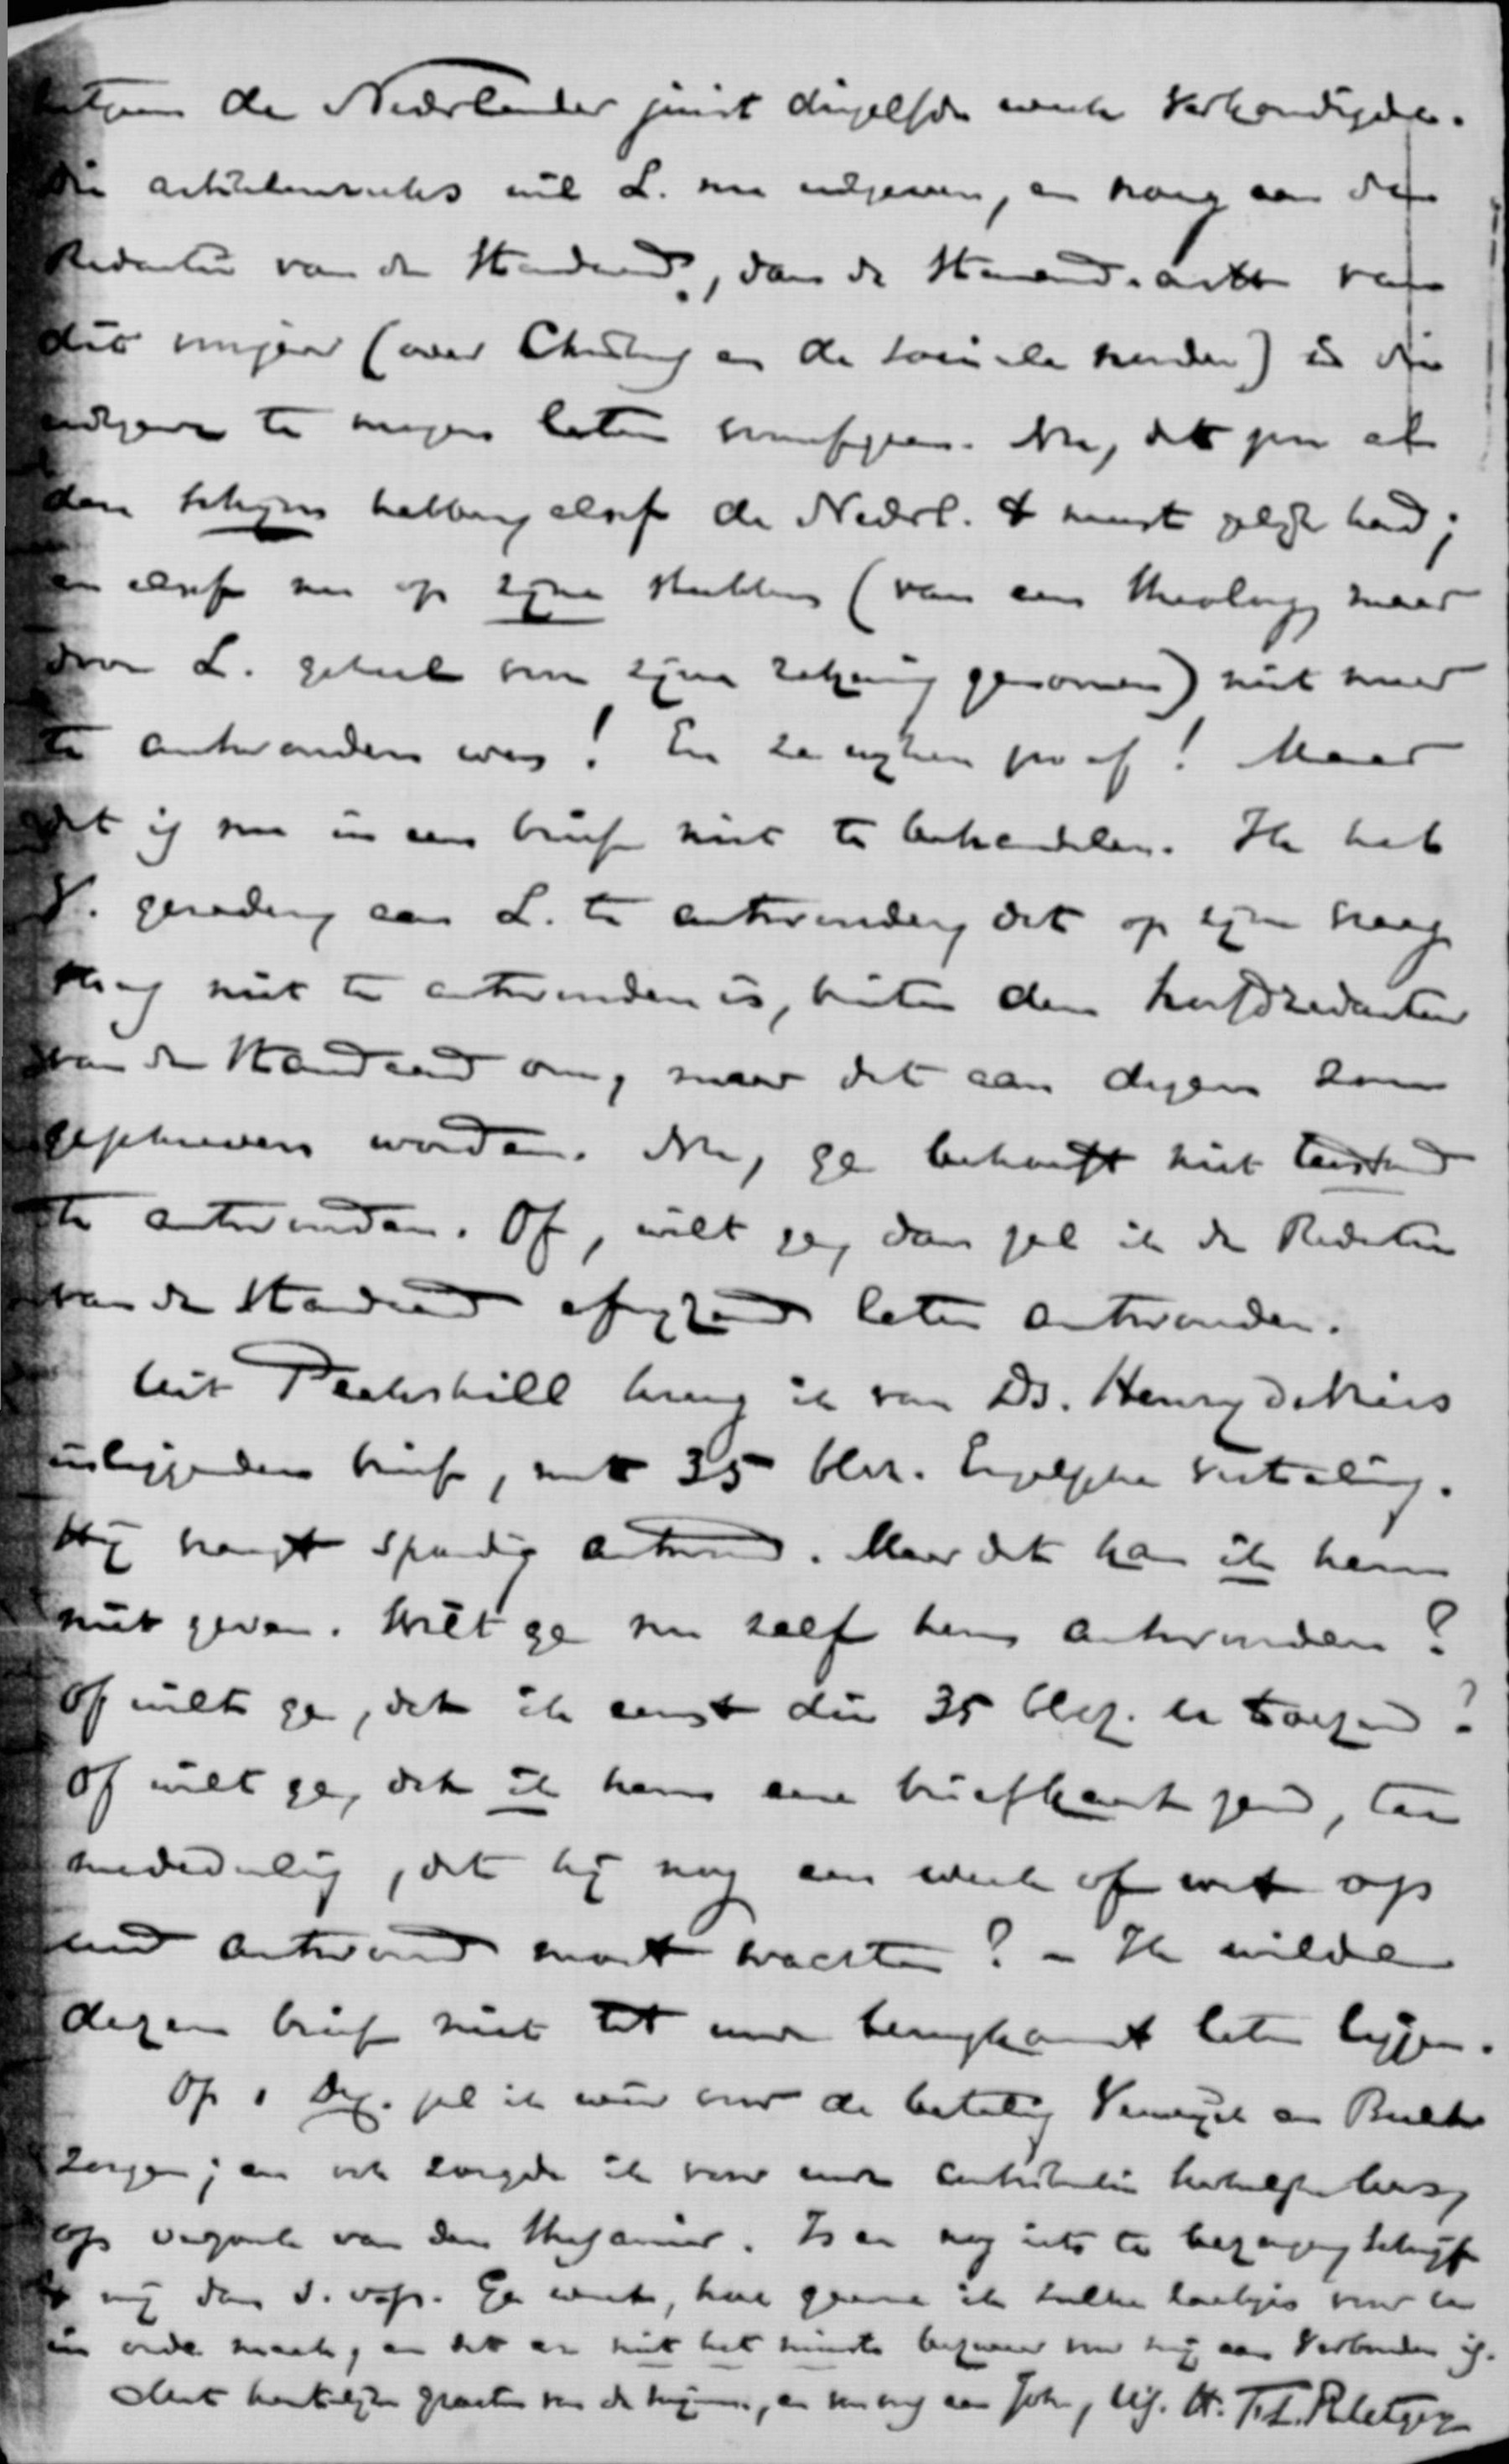 hetgeen de Nederlander juist diezelfde week verkondigde.
Die artikelenreeks wil L. nu uitgeven, en vraag aan de
Redactie van de Standaard, dan de Standaardartt. van
dit voorjaar (over Christus en de sociale nooden) in die
uitgave te mogen laten voorafgaan. Nu, dat zou al
den schijn hebben, alsof de Nederl. het meest gelijk had;
en alsof nu op zijne stukken (van een theoloog, maar
door L. geheel voor zijne rekening genomen) niet meer
te antwoorden was! En ze eischen zoo af! Maar
dat is nu in een brief niet te behandelen. Ik heb
V. geraden, aan L. te antwoorden, dat op zijn vraag
thans niet te antwoorden is, buiten den hoofdredacteur
van de Standaard om, maar dat aan dezen zou
geschreven worden. Nu, ge behoeft niet terstond
te antwoorden. Of, wilt ge, dan zal ik de Redactie
van de Standaard afwijzend laten antwoorden.
Uit Peekskill kreeg ik van Ds. Henry de Vries
inliggenden brief, met 35 blz. Engelsche vertaling.
Hij vraagt spoedig antwoord. Maar dat kan ik hem
niet geven. Wilt ge nu zelf hem antwoorden?
Of wilt ge, dat ik eerst die 35 blz. u toezend?
Of wilt ge, dat ik hem eene briefkaart zend, ter
mededeeling, dat hij nog een week of wat op
uw antwoord moet wachten? – Ik wilde
dezen brief niet tot uwe terugkomst laten liggen.
Op 1 Dez. zal ik weer voor de betaling en
zorgen; en ook zorgde ik voor uwe contributie
op van den. Is er nog iets te bezorgen, schrijf
het mij dan s. v. p. Ge weet, hoe gaarne ik zulke zaakjes voor u
in orde maak, en dat er niet het minste bezwaar voor mij aan verbonden is.
Met hartelijke groeten van de mijnen, en van mij aan John, t.à.t. F. L. Rutgers